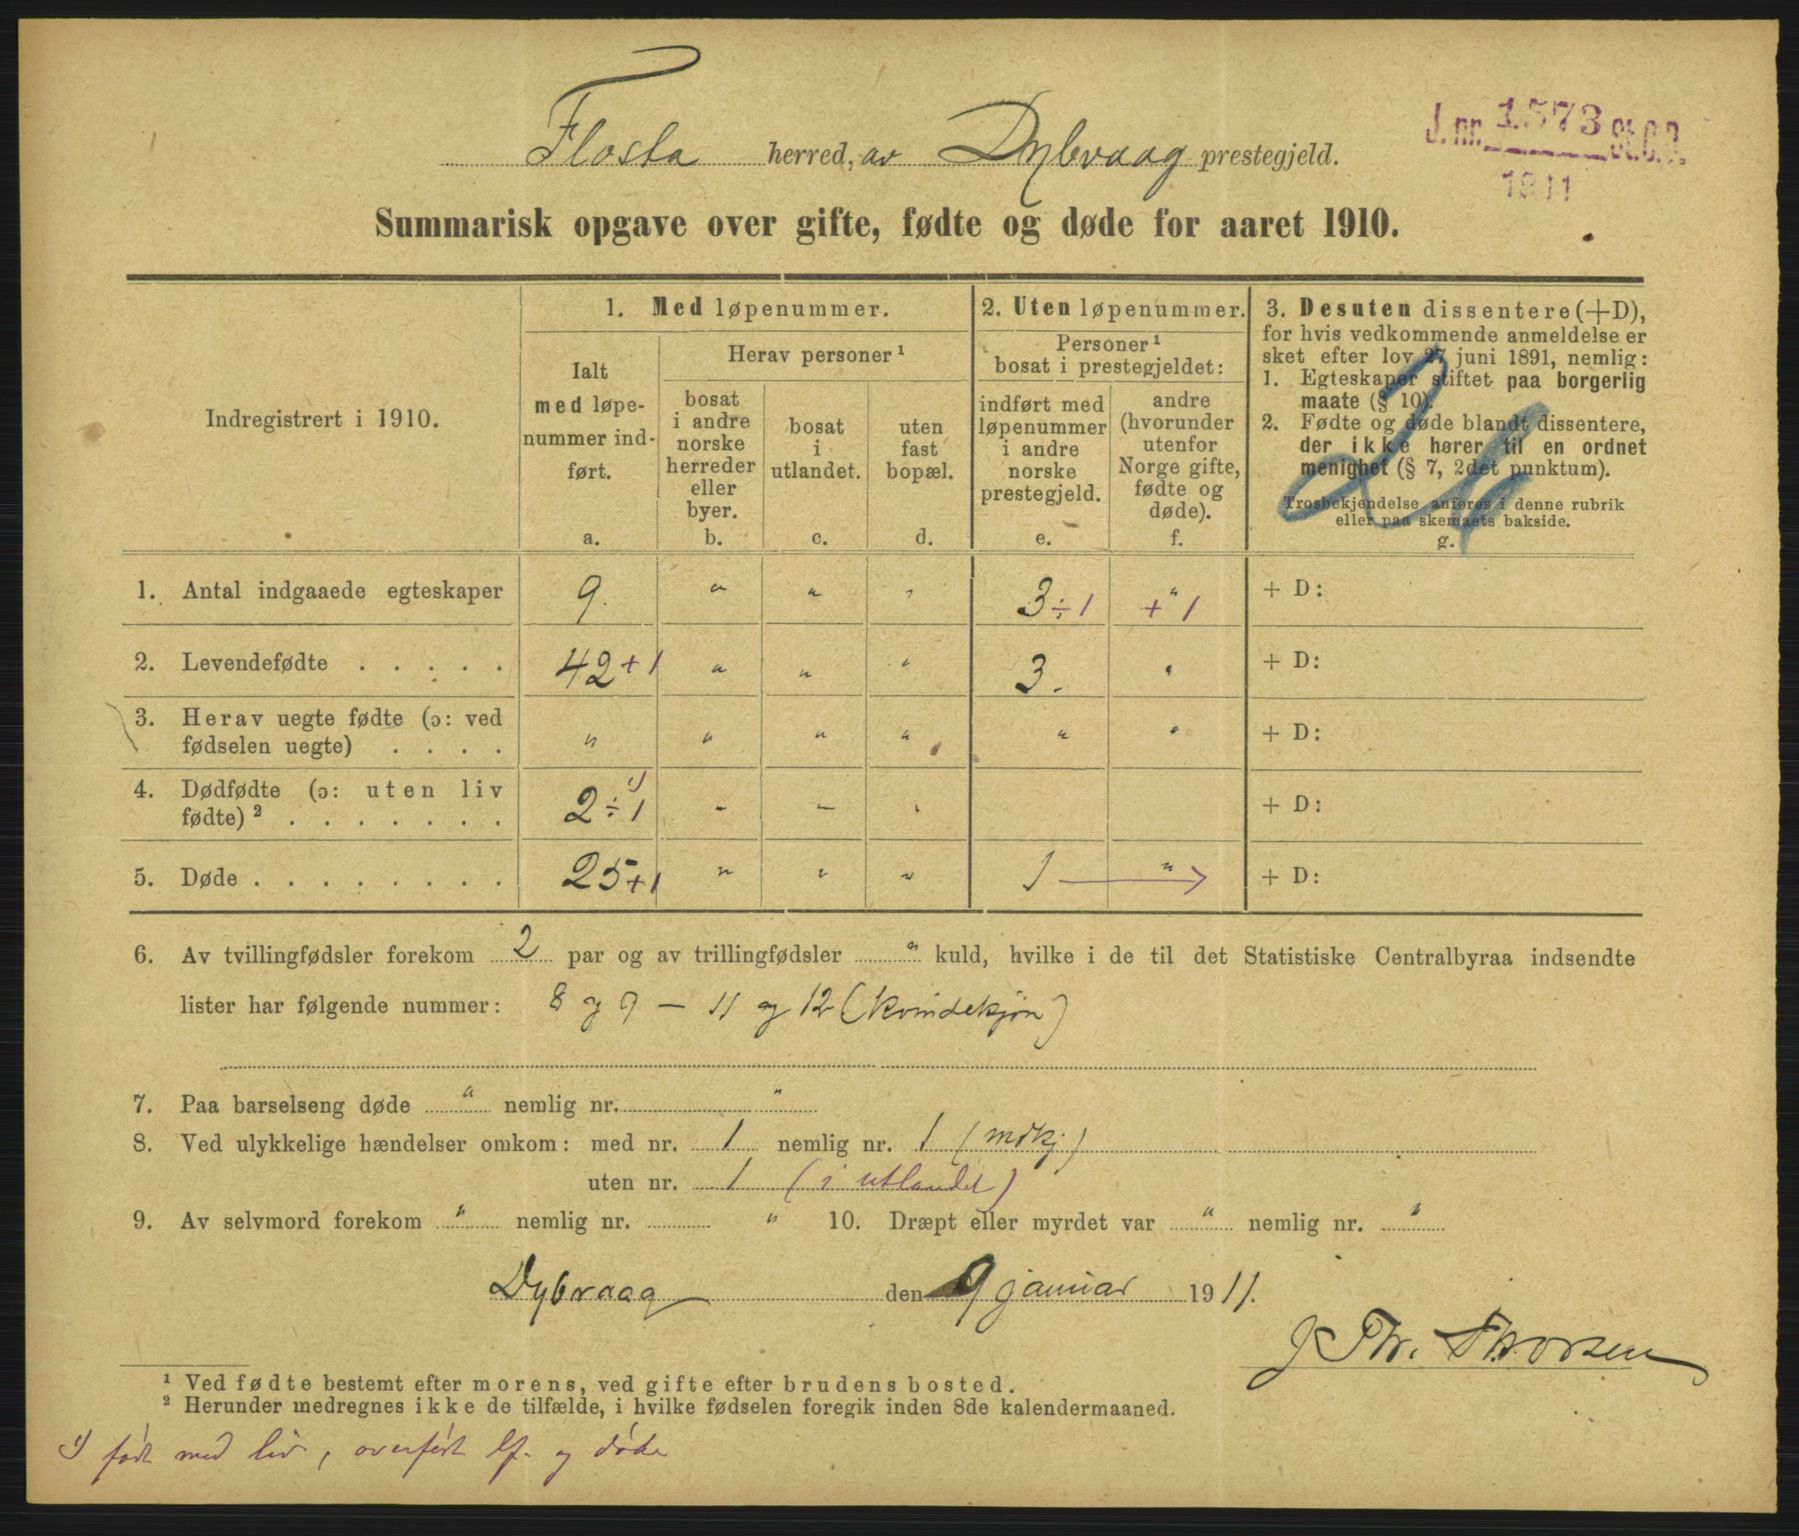 Flosta herred, av Dybvaag prestegjeld.
J. nr. 1573 St.C.B.
1911
Summarisk opgave over gifte, fødte og døde for aaret 1910.
Indregistrert i 1910.
1. Med løpenummer.
Ialt
med løpe-
nummer ind-
ført.
a.
Herav personer ¹
bosat
i andre
norske
herreder
eller
byer.
b.
bosat
i
utlandet.
c.
uten
fast
bopæl.
d.
2. Uten løpenummer.
Personer ¹
bosat i prestegjeldet:
indført med
løpenummer
i andre
norske
prestegjeld.
e.
andre
(hvorunder
utenfor
Norge gifte,
fødte og
døde).
f.
3. Desuten dissentere (+D),
for hvis vedkommende anmeldelse er
sket efter lov 27 juni 1891, nemlig:
1. Egteskaper stiftet paa borgerlig
maate (§ 10).
2. Fødte og døde blandt dissentere,
der ikke hører til en ordnet
menighet (§ 7, 2det punktum).
Trosbekjendelse anføres i denne rubrik
eller paa skemaets bakside.
g.
1. Antal indgaaede egteskaper 9. " " " 3 ÷ 1 " + 1 + D:
2. Levendefødte . . . . . 42 + 1 " " " 3. " + D:
3. Herav uegte fødte (ɔ: ved
fødselen uegte) . . . . " " " " " " + D:
4. Dødfødte (ɔ: uten liv
fødte) ² . . . . . . . 2 ÷ 1 ¹) - - - + D:
5. Døde . . . . . . . . 25 + 1 " " " 1 " + D:
6. Av tvillingfødsler forekom 2 par og av trillingfødsler " kuld, hvilke i de til det Statistiske Centralbyraa indsendte
lister har følgende nummer: 8 og 9 — 11 og 12 (kvindekjøn)
7. Paa barselseng døde " nemlig nr. "
8. Ved ulykkelige hændelser omkom: med nr. 1 nemlig nr. 1 (mdkj)
uten nr. 1 (i utlandet)
9. Av selvmord forekom " nemlig nr. " 10. Dræpt eller myrdet var " nemlig nr. "
Dybvaag den 9 januar 1911.
J Thr. Thorsen
¹ Ved fødte bestemt efter morens, ved gifte efter brudens bosted.
² Herunder medregnes ikke de tilfælde, i hvilke fødselen foregik inden 8de kalendermaaned.
¹) født med liv, overført lf. og døde